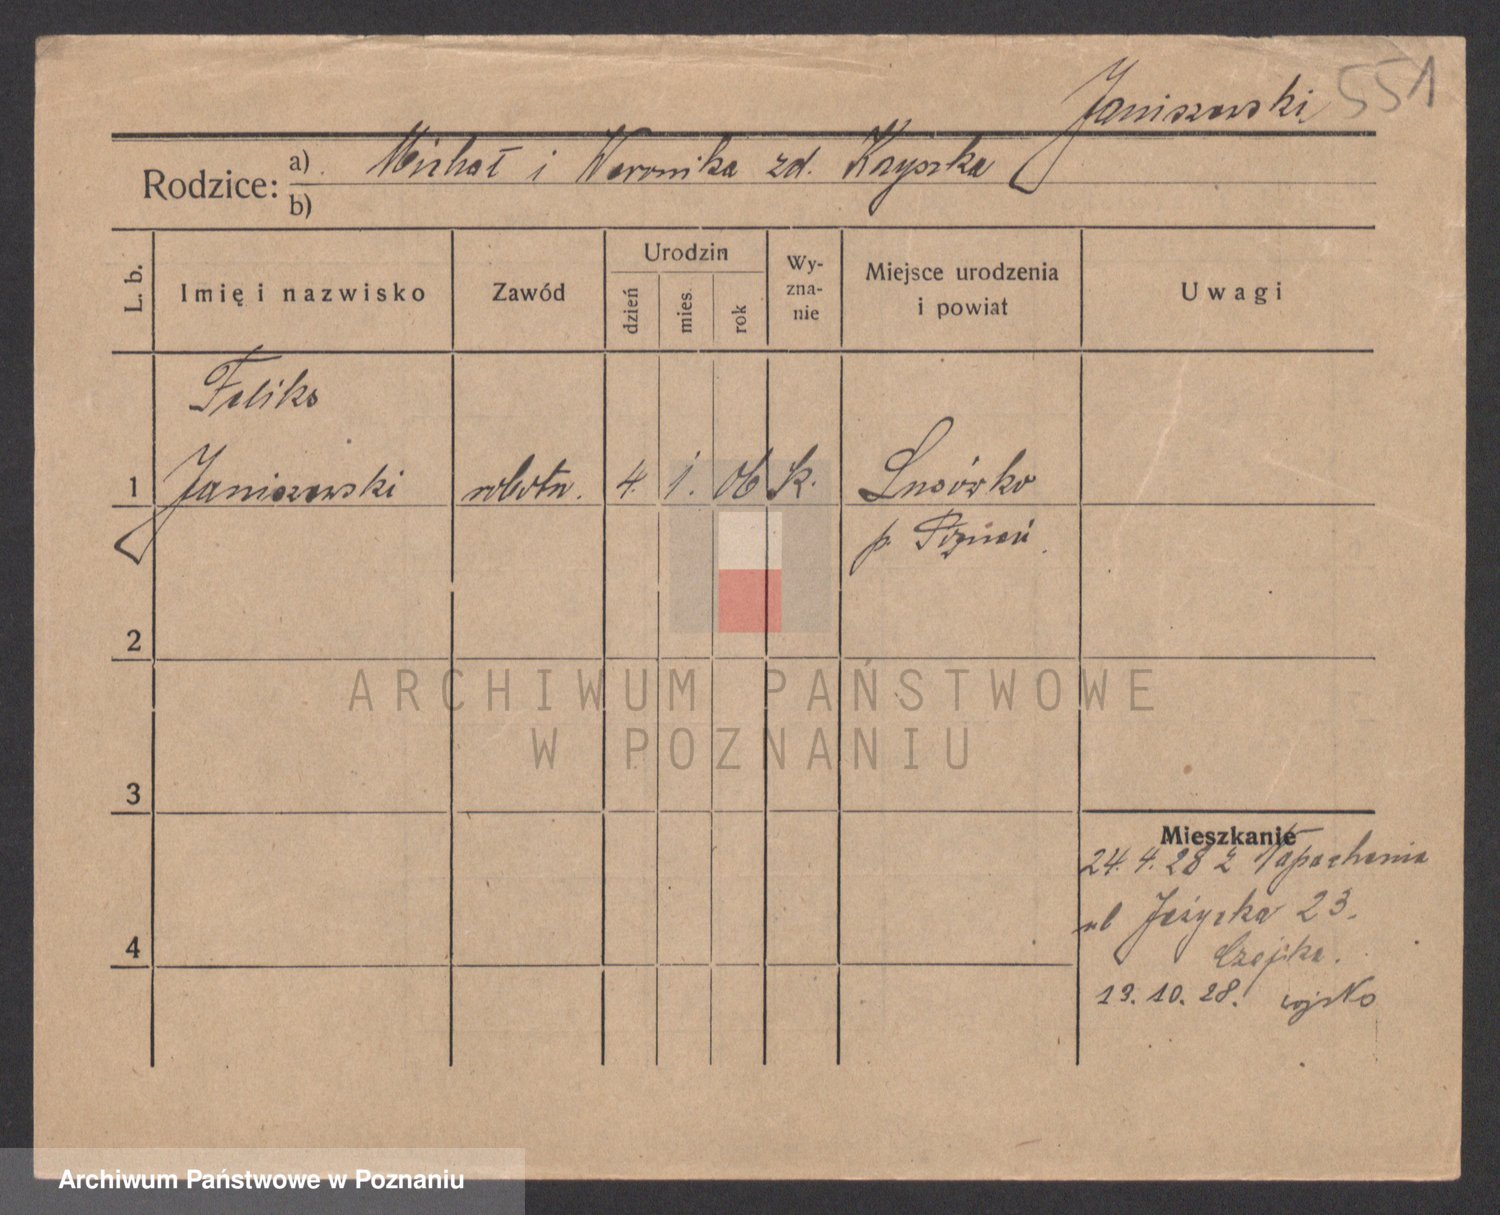 Janiszewski 551
Rodzice: a) Michał i Weronika zd. Kryszka
b)
L. b.
Imię i nazwisko
Zawód
Urodzin
dzień
mies.
rok
Wy-
zna-
nie
Miejsce urodzenia
i powiat
Uwagi
Feliks
1 Janiszewski robotn. 4. 1. 06 k. Lusówko
p. Poznań
2
3
4
Mieszkanie
24. 4. 28 z Napachania
ul Jeżycka 23.
Czajka.
19. 10. 28. wojsko
ARCHIWUM PAŃSTWOWE
W POZNANIU
Archiwum Państwowe w Poznaniu